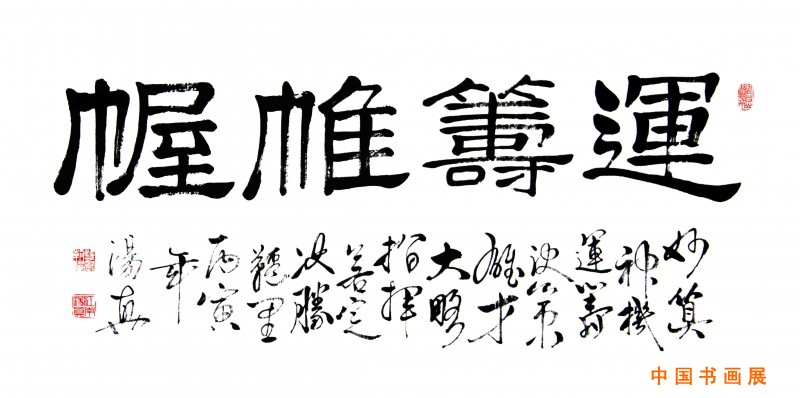 運籌帷幄
妙算
神機
運籌
決策
雄才
大略
指揮
若定
決勝
千里
丙寅
年
湯真
中国书画展